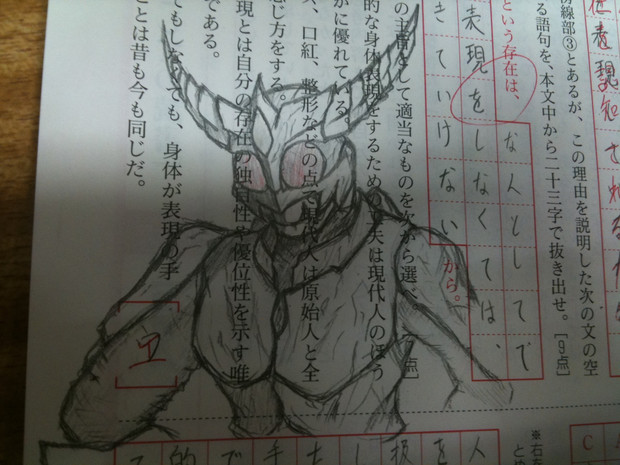 傍線部③とあるが、この理由を説明した次の文の空
る語句を、本文中から二十三字で抜き出せ。［9点］
という存在は、なんとしてで
表現をしなくては、
きていけないから。
の主旨として適当なものを次から選べ。
点］
的な身体表現をするための工夫は現代人のほう
かに優れている。
ス、口紅、整形などの点で現代人は原始人と全
じ方をする。
現とは自分の存在の独自性や優位性を示す唯
である。
てもしないでも、身体が表現の手
ことは昔も今も同じだ。
エ
※右
C